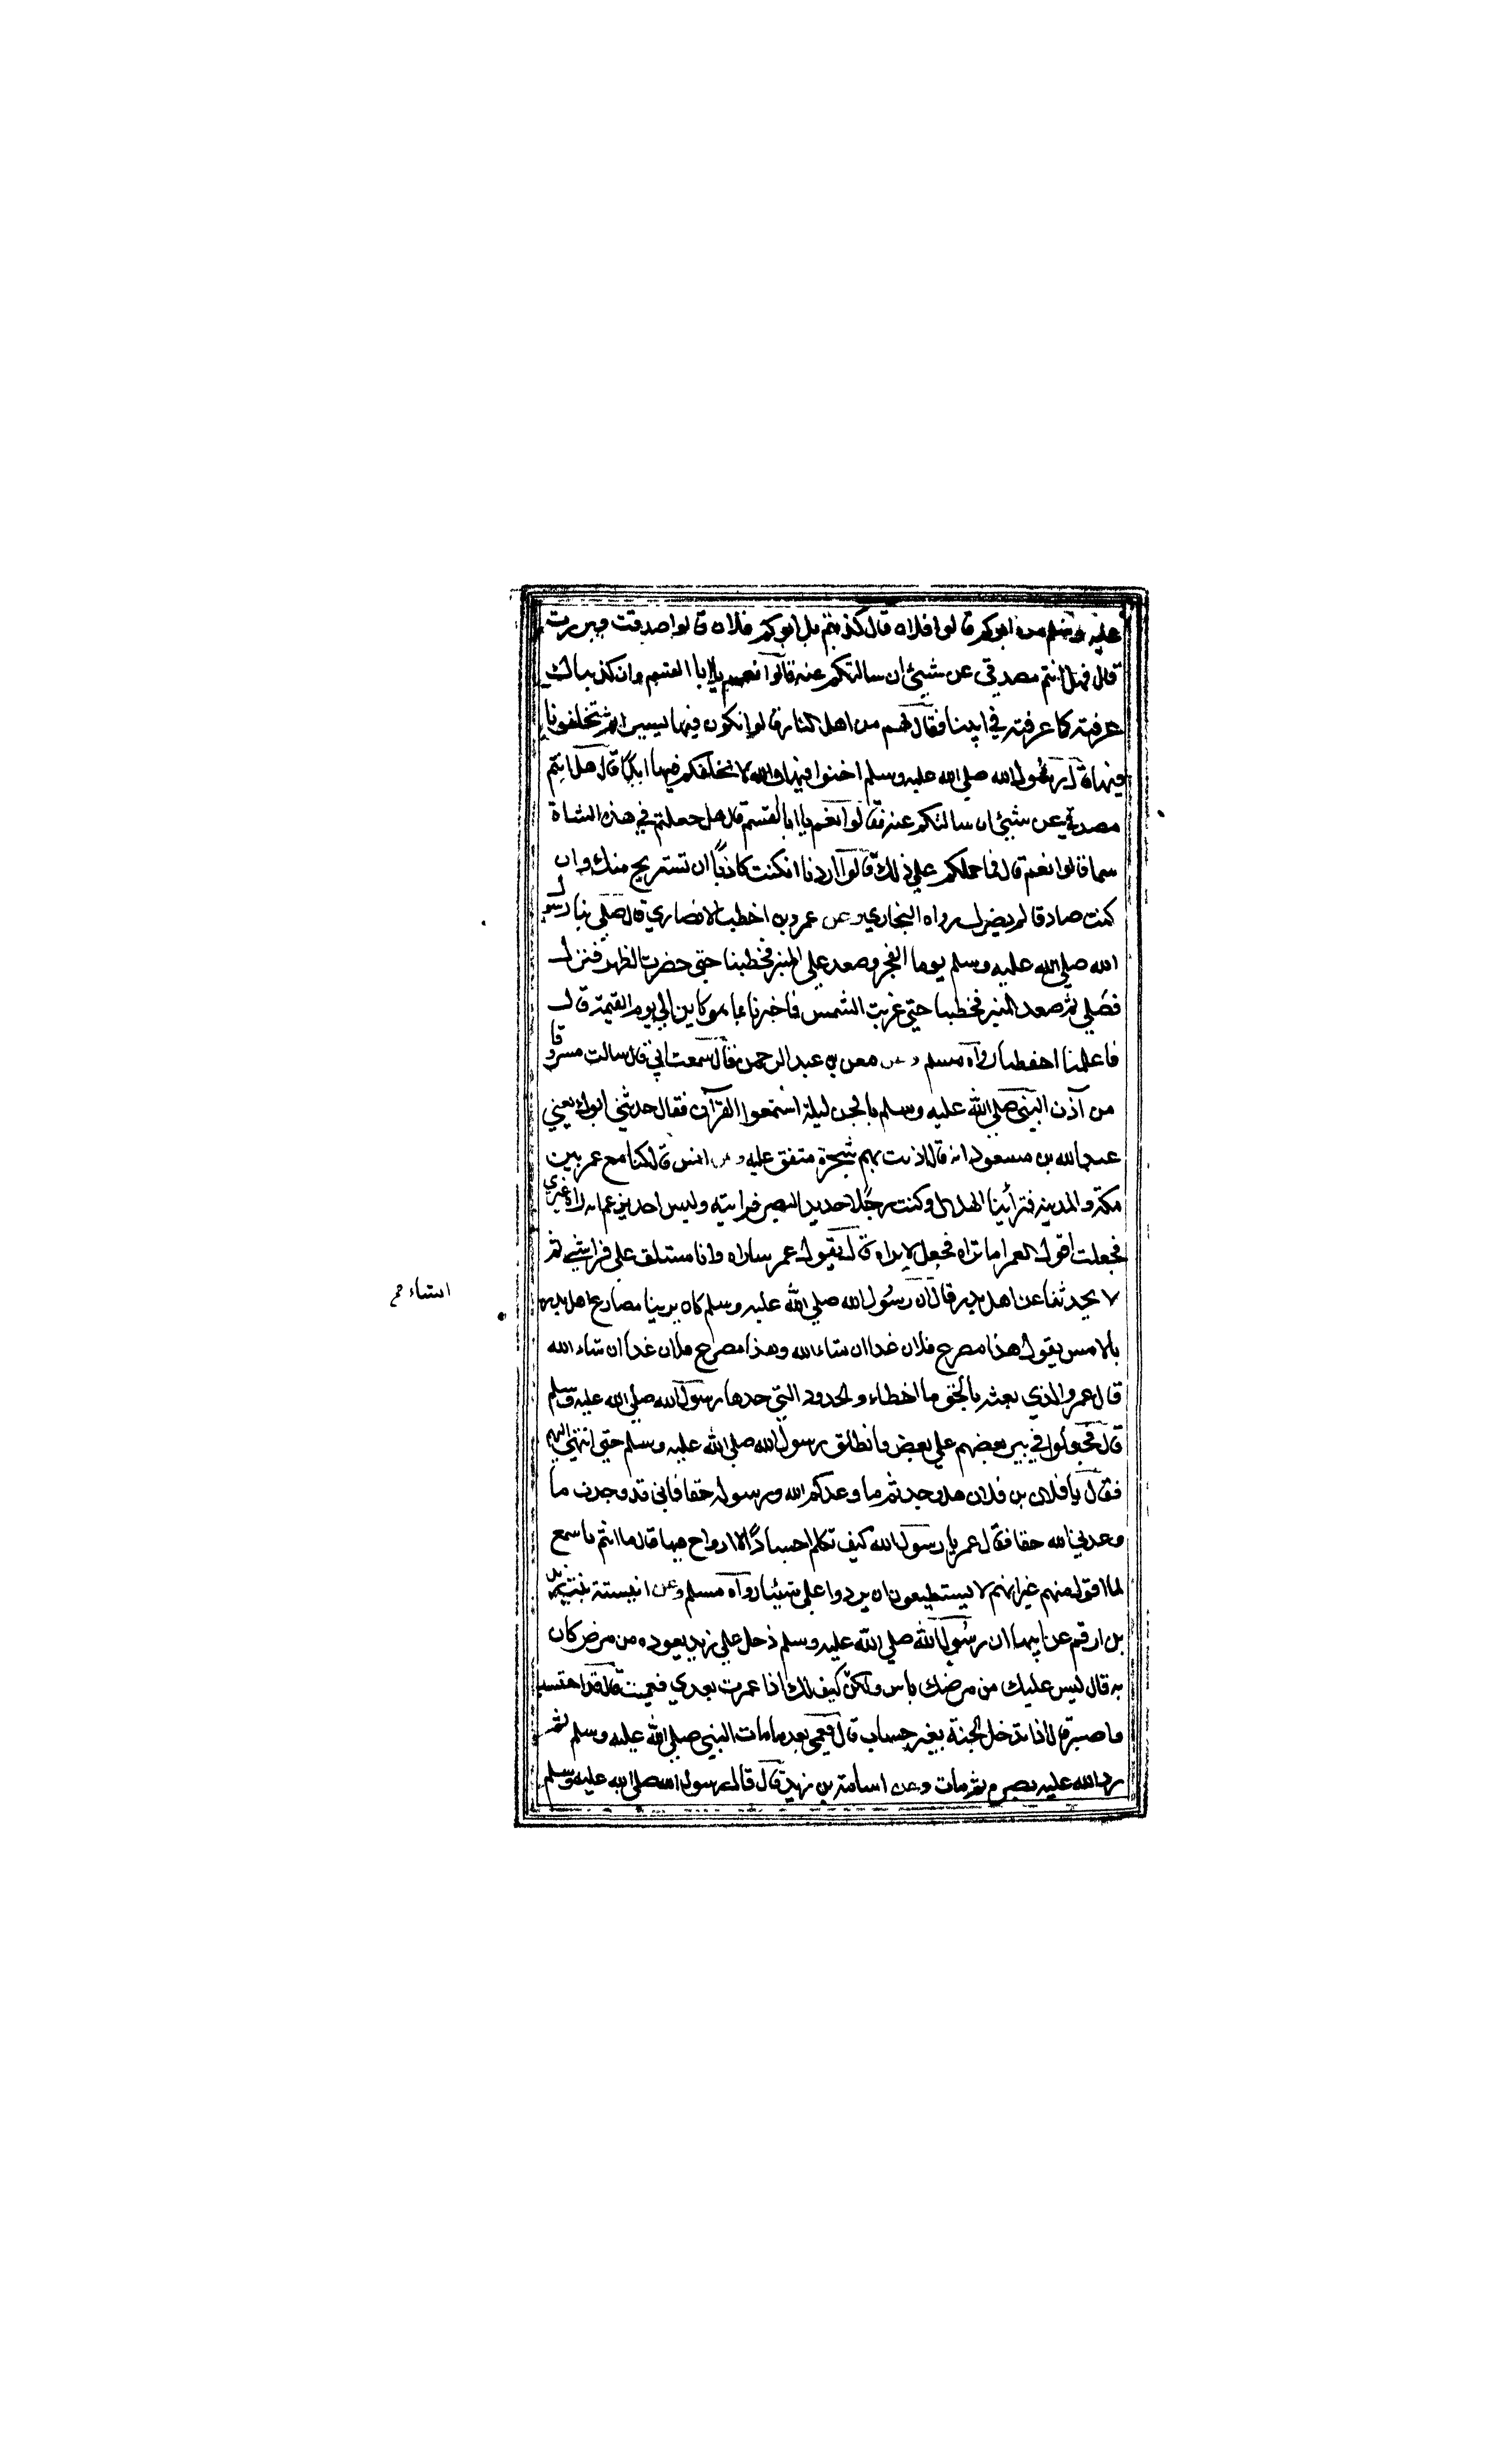 عليه وسلم من ابوكم قالوا فلان قال كذبتم بل ابوكم فلان قالوا صدقت وبررت
قال فهل انتم مصدقي عن شيئ ان سالتكم عنه قالوا نعم يا ابا القسم وان كذبناك
عرفته كما عرفته في ابينا فقال لهم من اهل النار قالوا نكون فيها يسيرا ثم تخلفونا
فيها قال رسول الله صلي الله عليه وسلم اخسئوا فيها والله لا نخلفكم فيها ابدًا قال هل انتم
مصدقي عن شيئ ان سالتكم عنه فقالوا نعم يا ابا القسم قال هل جعلتم في هذه الشاة
سما قالوا نعم قال فما حملكم علي ذلك قالوا اردنا ان كنت كاذبًا ان تستريح منك وان
كنت صادقا لم يضرك رواه البخاري وعن عمرو بن اخطب الانصاري قال صلي بنا رسول
الله صلي الله عليه وسلم يوما الفجر وصعد علي المنبر فخطبنا حتي حضرت الظهر فنزل
فصلي ثم صعد المنبر فخطبنا حتي غربت الشمس فاخبرنا بما هو كاين الي يوم القيمة قال
فاعلمنا احفظنا رواه مسلم وعن معن بن عبد الرحمن فقال سمعت ابي قال سالت مسروقا
من آذن النبي صلي الله عليه وسلم بالجن ليلة استمعوا القرآن فقال حدثني ابوك يعني
عبد الله بن مسعود انه قال اذنت بهم شجرة متفق عليه وعن انس قال كنا مع عمر بين
مكة والمدينة فترأينا الهلال وكنت رجلًا حديد البصر فرايته وليس احد يزعم انه راه غيري
فجعلت اقول لعمر اما تراه فجعل لا يراه قال يقول عمر ساراه وانا مستلق علي فراشي ثم
لا يحدثنا عن اهل بدر قال ان رسول الله صلي الله عليه وسلم كان يرينا مصارع اهل بدر
بالامس يقول هذا مصرع فلان غدا ان شاء الله وهذا مصرع فلان غدا ان شاء الله
قال عمر والذي بعثه بالحق ما اخطاء والحدود التي حدها رسول الله صلي الله عليه وسلم
قال فجعلوا في بير بعضهم علي بعض فانطلق رسول الله صلي الله عليه وسلم حتي انتهي اليهم
فقال يا فلان بن فلان هل وجدتم ما وعدكم الله ورسوله حقا فاني قد وجدت ما
وعدني الله حقا فقال عمر يا رسول الله كيف تكلم اجسادًا لا ارواح فيها قال ما انتم باسمع
لما اقول منهم غير انهم لا يستطيعون ان يردوا علي شيئا رواه مسلم وعن انيسة بنت زيد
بن ارقم عن ابيها ان رسول الله صلي الله عليه وسلم دخل علي زيد يعوده من مرض كان
به قال ليس عليك من مرضك باس ولكن كيف لك اذا عمرت بعدي فعميت قال احتسب
واصبر قال اذا تدخل الجنة بغير حساب قال فعمي بعد ما مات النبي صلي الله عليه وسلم ثم
رد الله عليه بصره ثم مات وعن اسامة بن زيد قال قال رسول الله صلي الله عليه وسلم